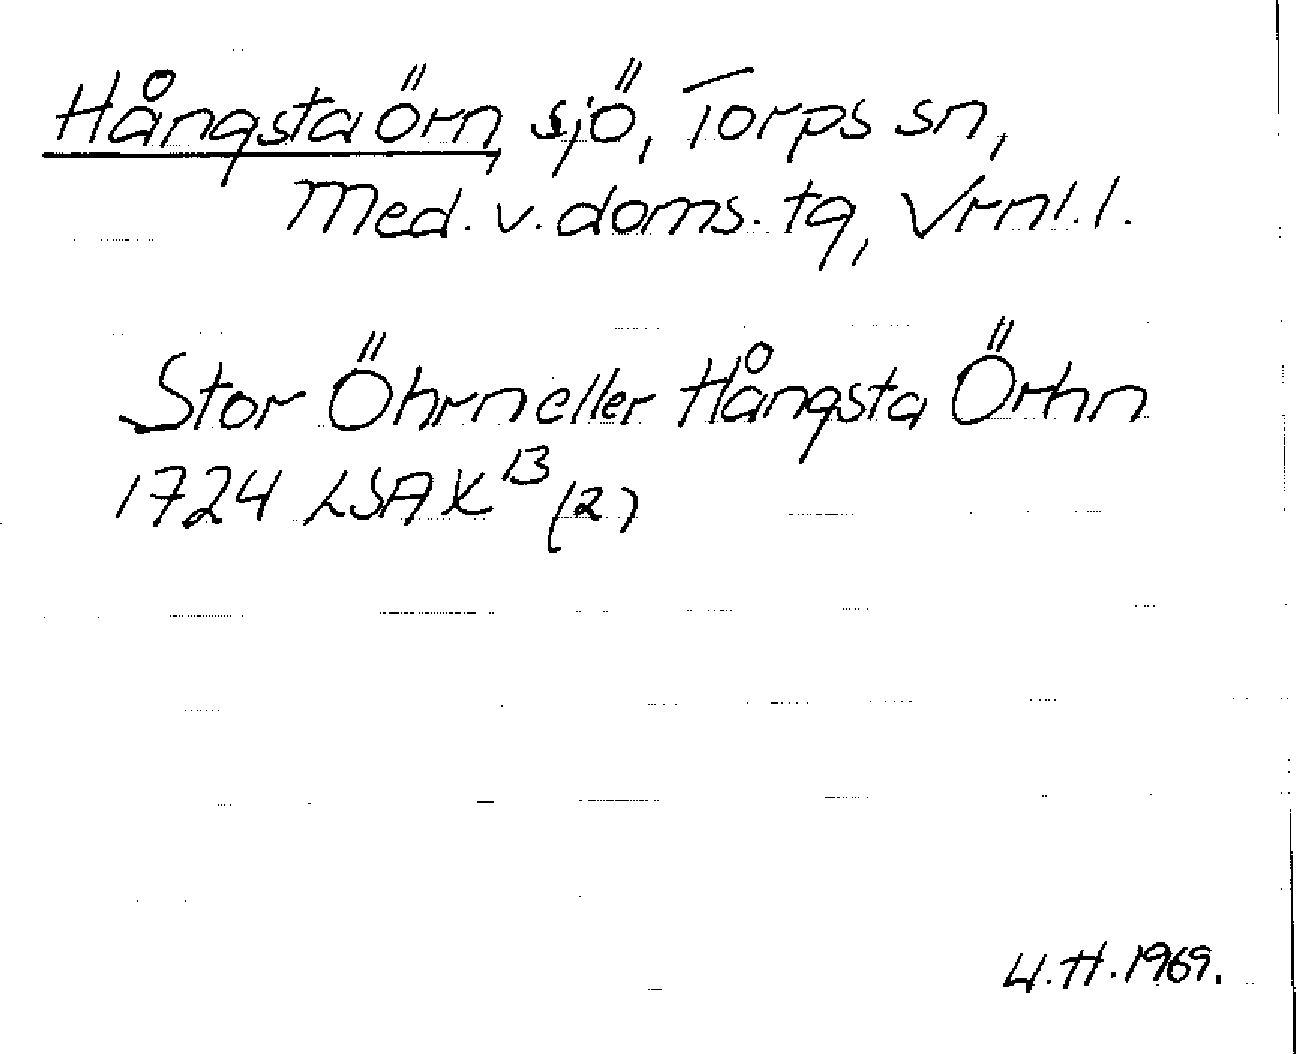 Hångstaörn, sjö, Torps sn,
Med. v. doms. tg, Vrnl. l.
Stor Öhrn eller Hångsta Örhn
1724 LSA X 13 (2)
U. H. 1969.